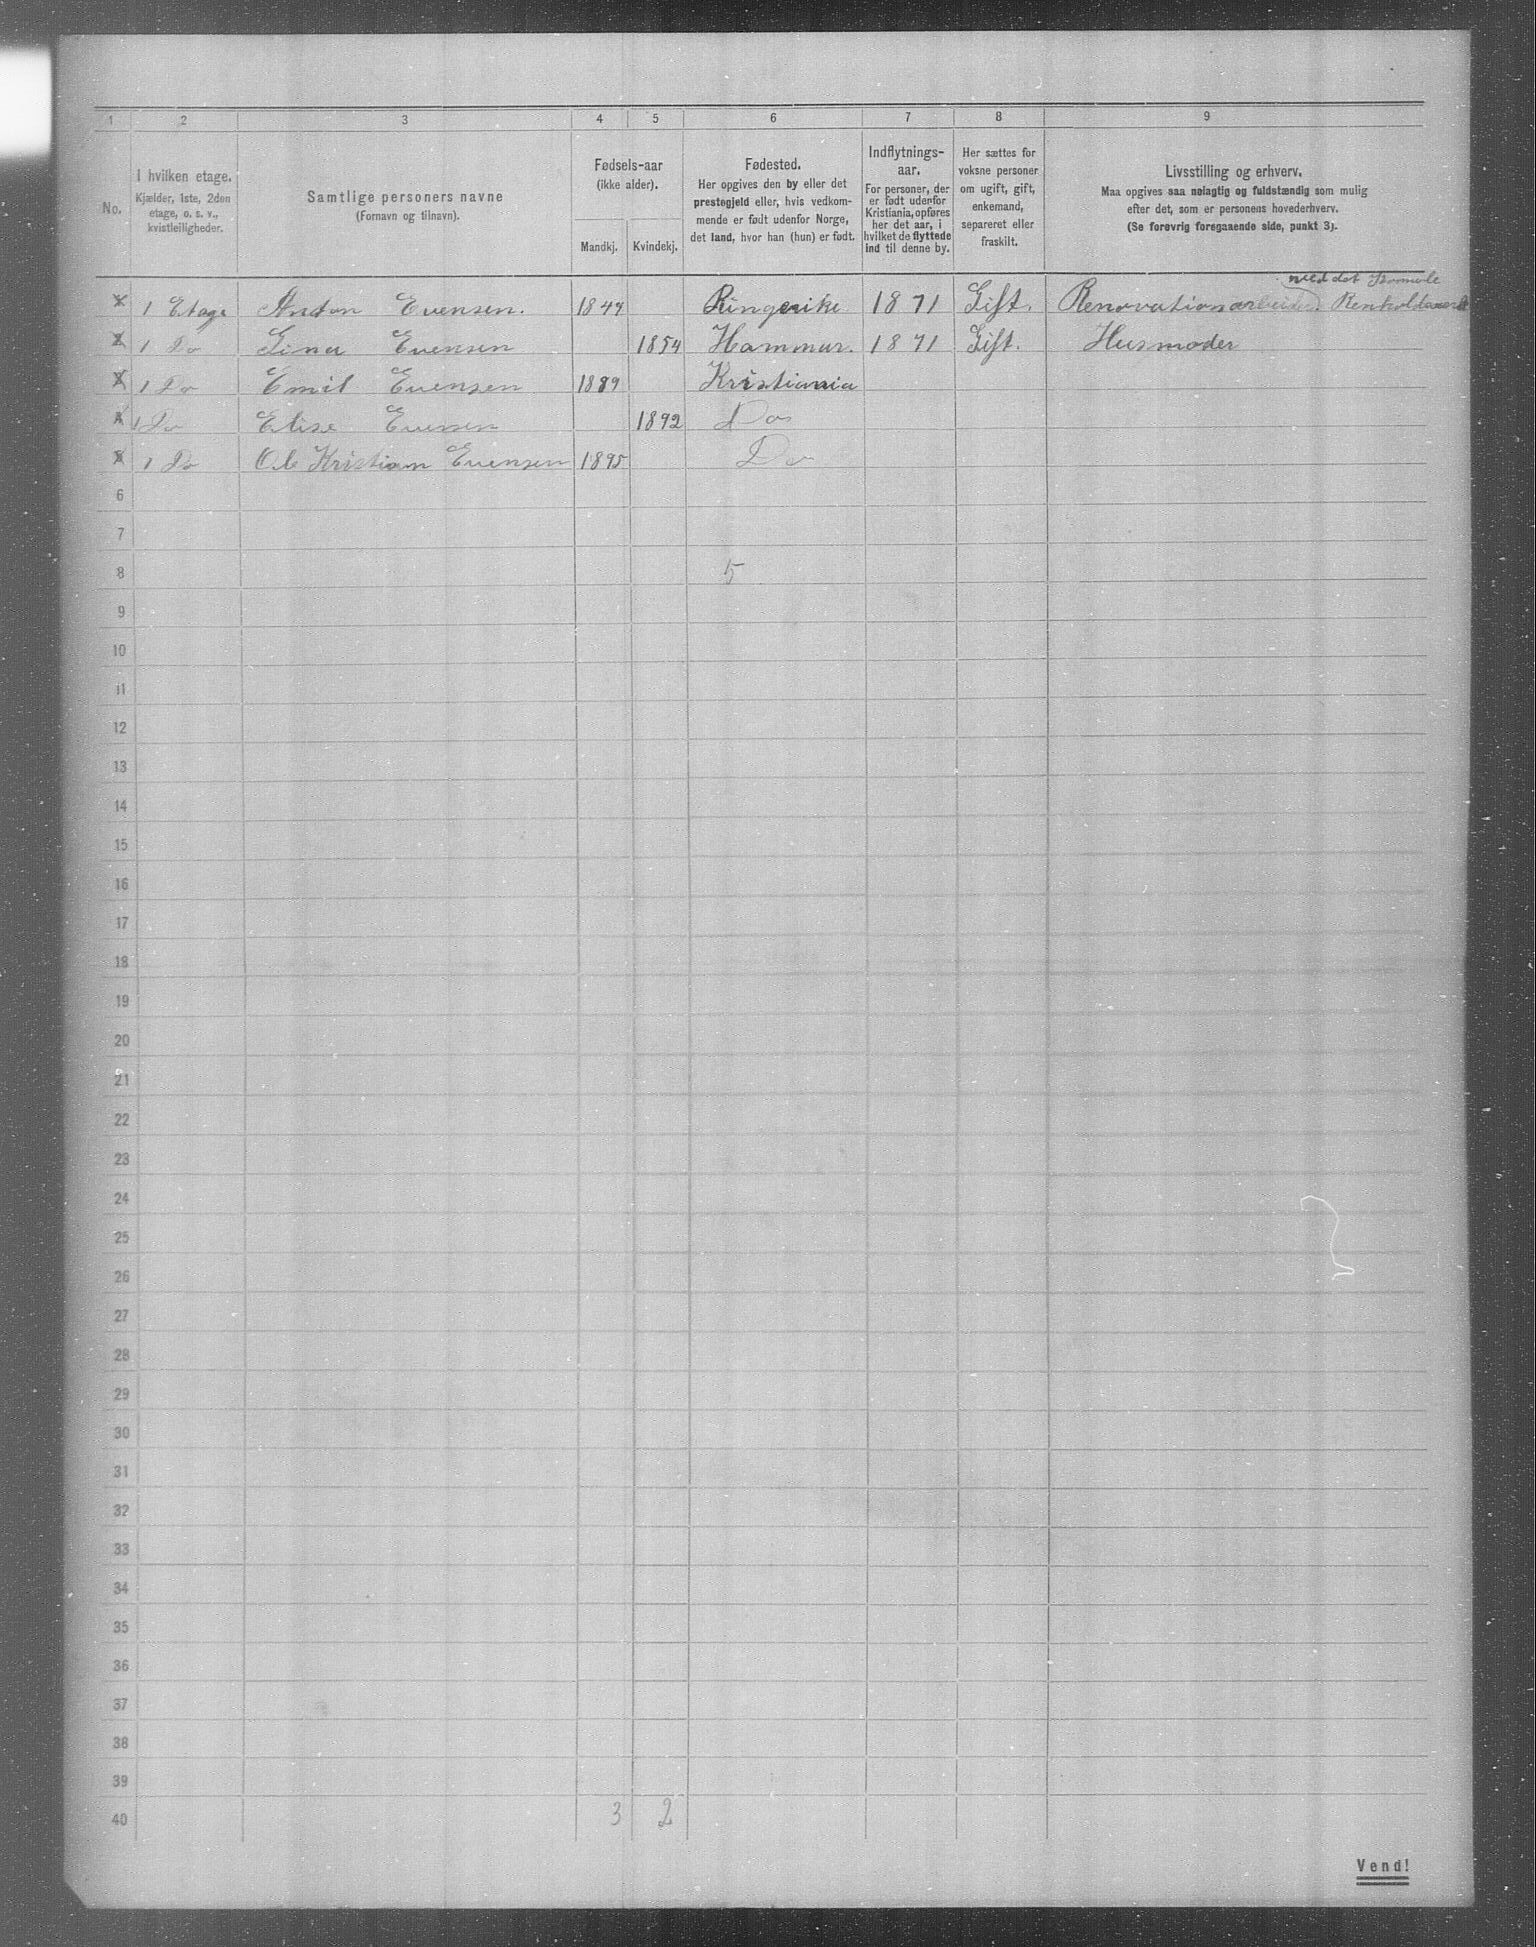 1 2 3 4 5 6 7 8 9
No.
I hvilken etage.
Kjælder, 1ste, 2den
etage, o. s. v.,
kvistleiligheder.
Samtlige personers navne
(Fornavn og tilnavn).
Fødsels-aar
(ikke alder).
Mandkj. Kvindekj.
Fødested.
Her opgives den by eller det
prestegjeld eller, hvis vedkom-
mende er født udenfor Norge,
det land, hvor han (hun) er født.
Indflytnings-
aar.
For personer, der
er født udenfor
Kristiania, opføres
her det aar, i
hvilket de flyttede
ind til denne by.
Her sættes for
voksne personer
om ugift, gift,
enkemand,
separeret eller
fraskilt.
Livsstilling og erhverv.
Maa opgives saa nøiagtig og fuldstændig som mulig
efter det, som er personens hovederhverv.
(Se forøvrig foregaaende side, punkt 3).
ved det
1 Etage Anton Evensen. 1844 Ringerike 1871 Gift. Renovationarbeider
1 Do Lina Evensen 1854 Hammar. 1871 Gift. Husmoder
1 Do Emil Evensen 1889 Kristiania
1 Do Elise Evensen 1892 Do
1 Do Ole Kristian Evensen 1895 Do
6
7
8 5
9
10
11
12
13
14
15
16
17
18
19
20
21
22
23
24
25
26
27
28
29
30
31
32
33
34
35
36
37
38
39
40 3 2
Vend!